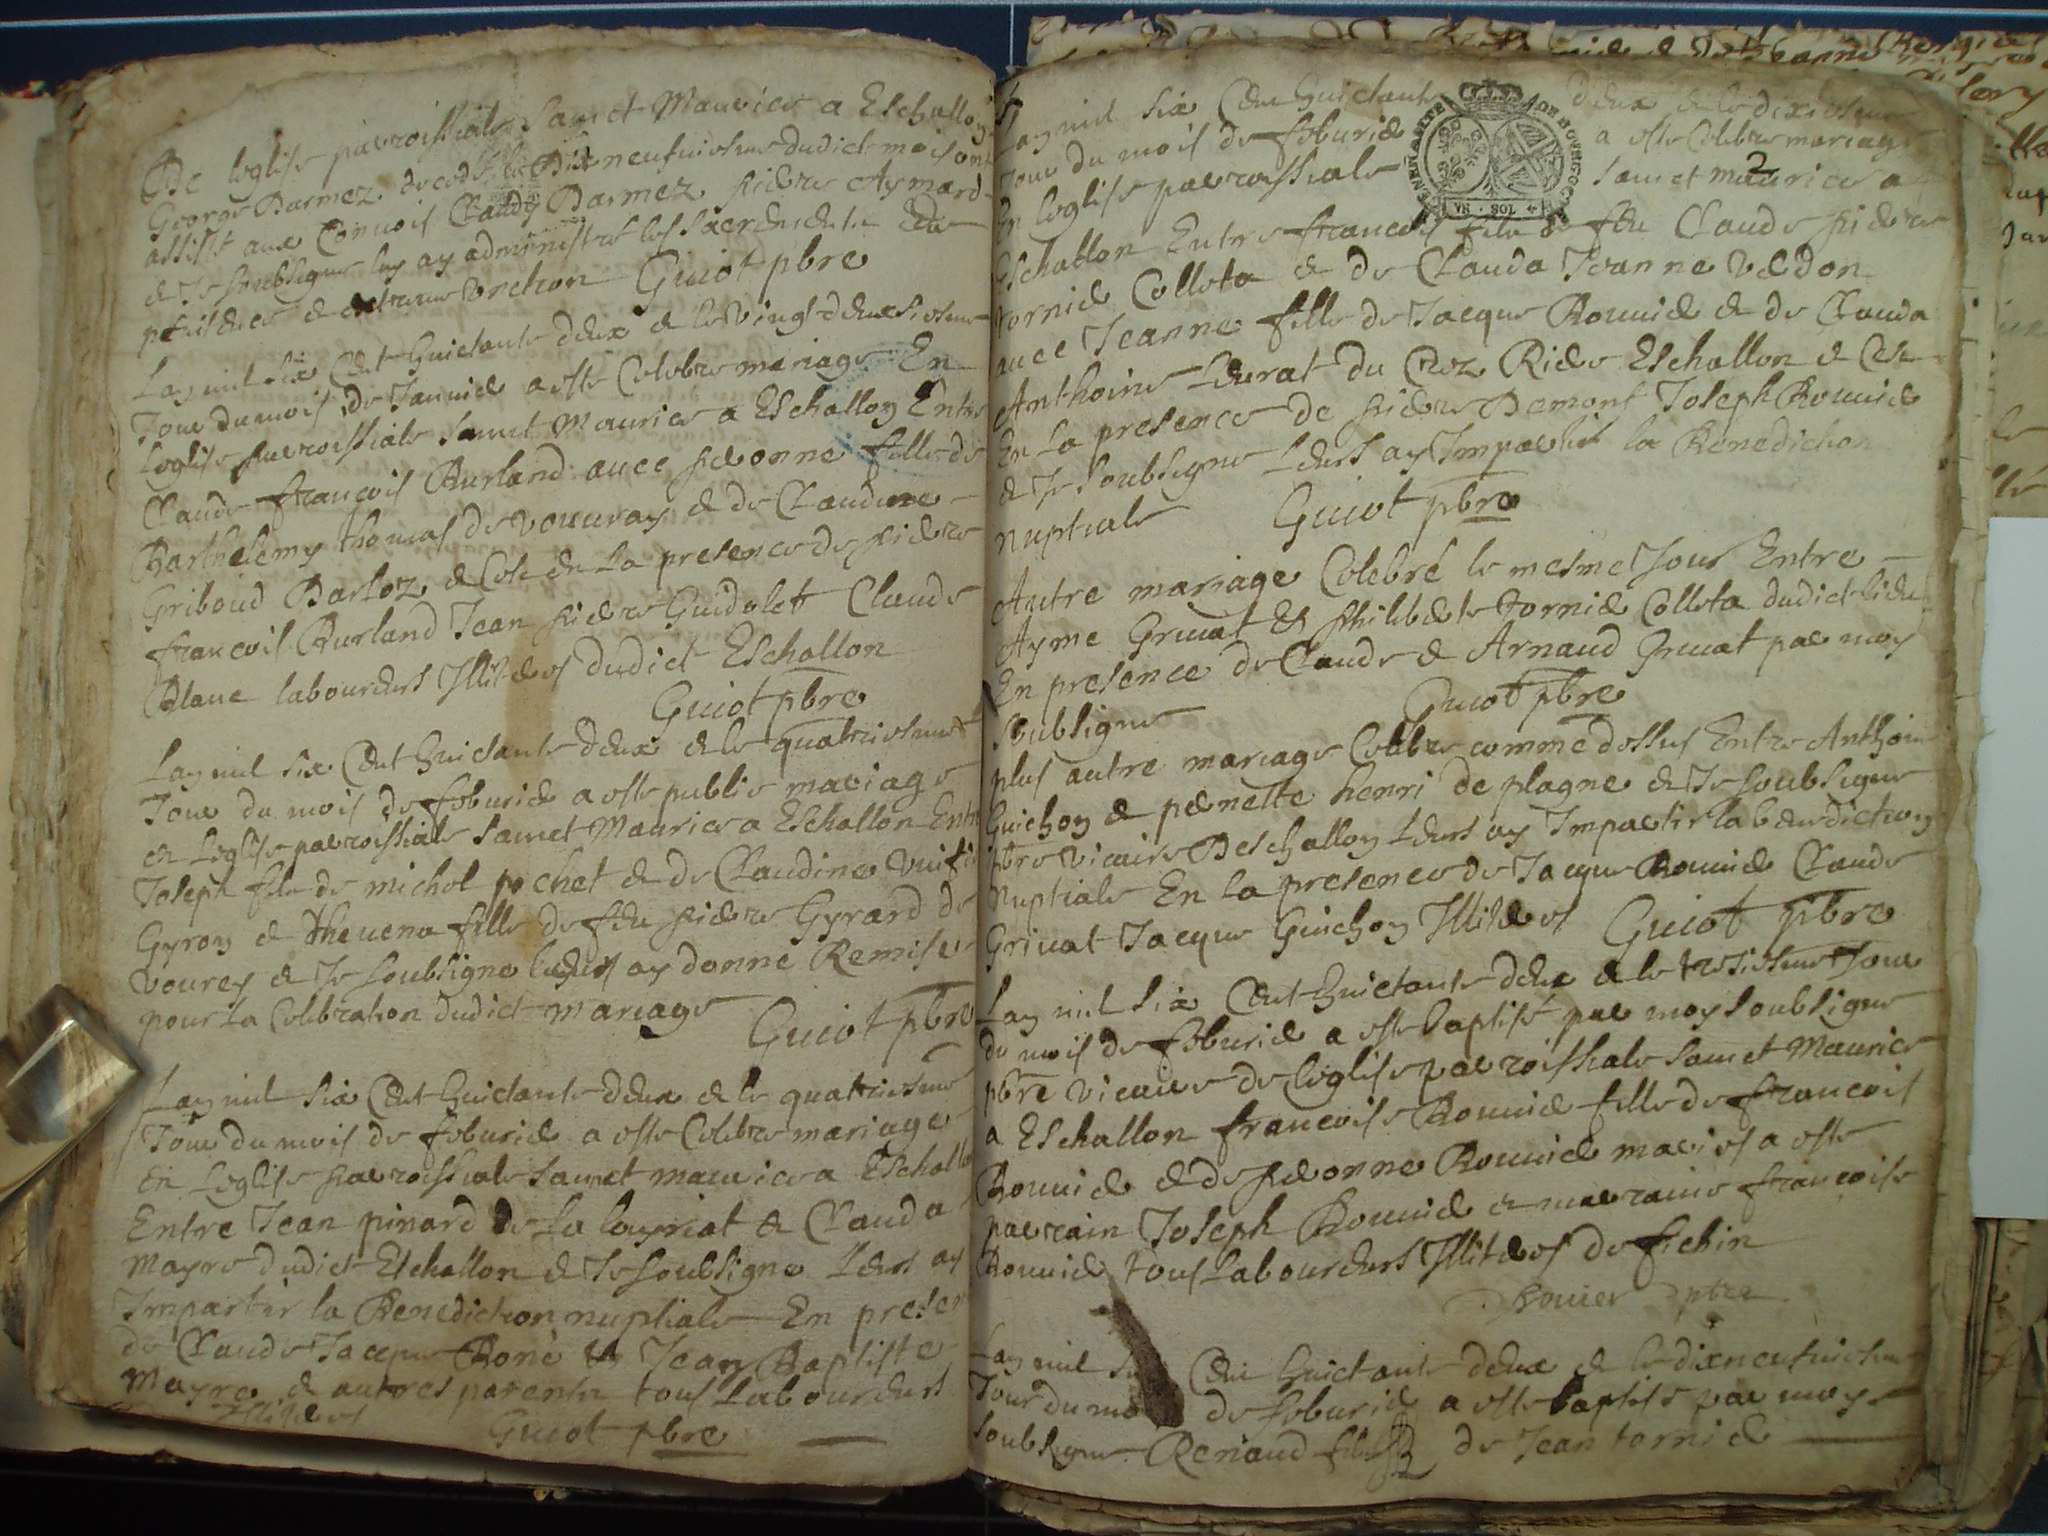 De leglise parroissiale Sainct Maurice a Eschallon
George Darmez decedé le dixneufuiesme dudict mois ont
assisté aux Conuois Claude Darmez pierre Aymard
& Je soubsigne luy ay administré les sacrements de
penitence & extreme onction Guiot pbre
Lan mil six Cent huictante deux & le vingt deuxiesme
Jour du mois de Januier a esté Celebre mariage En
leglise parroissiale Sainct Maurice a Eschallon Entre
Claude françois Burland auec pieronne fille de
Barthelemy thomas de vouuray & de Claudine
Griboud Barloz & Ce en la presence de pierre
françois Burland Jean pierre Guidalet Claude
Blanc laboureurs Illiteres dudict Eschallon
Guiot pbre
Lan mil six Cent huictante deux & le quatriesme
Jour du mois de feburier a este publie mariage
en leglise parroissiale Sainct Maurice a Eschallon Entre
Joseph fils de michel pochet & de Claudine
Gyron & theuena fille de feu pierre Gyrard de
vourey & Je soubsigne leurs ay donné Remise
pour la Celebration dudict mariage Guiot pbre
Lan mil six Cent huictante deux & le quatriesme
Jour du mois de feburier a este Celebre mariage
En leglise parroissiale Sainct maurice a Eschallon
Entre Jean pinard de la layriat & Clauda
Mayre dudict Eschallon & Je soubsigne leurs ay
Impartir la Benediction nuptiale En presen
de Claude Jacque Boné Jean Baptiste
Mayre & autres parents tous Laboureurs
Illiteres Guiot pbre
Lan mil six Cent huictante deux & le dixiesme
Jour du mois de feburier a este Celebre mariage
En leglise parroissiale Sainct maurice a
2
GENERALITE DE BOURGOGNE
VN SOL 4
Eschallon Entre françois fils de feu Claude pierre
tornier Colleta & de Clauda Jeanne vedon
auec Jeanne fille de Jacque Bouuier & de Clauda
Anthoine Leurat du Crez Riere Eschallon & Ce
En la presence de pierre Demont Joseph Bouuier
& Je soubsigne Leurs ay Impartit la Benediction
nuptiale Guiot pbre
Autre mariage Celebré le mesme Jour Entre
Ayme Griuat & philiberte tornier Colleta dudict lieu
En presence de Claude & Arnaud Griuat par moy
soubsigne Guiot pbre
plus autre mariage Celebre comme dessus Entre Anthoine
Guichon & pernette henri de plagne & Je soubsigne
pbre vicaire Deschallon Leurs ay Impartir la benediction
nuptiale En la presence de Jacque Bouuier Claude
Griuat Jacque Guichon Illiteres Guiot pbre
Lan mil six Cent huictante deux & le tresiesme Jour
du mois de feburier a este baptisé par moy soubsigne
pbre vicaire de leglise parroissiale Sainct Maurice
a Eschallon francoise Bouuier fille de francois
Bouuier & de pieronne Bouuier mariés a este
parrain Joseph Bouuier & marraine françoise
Bouuier tous Laboureurs Illiteres de fichin
Bouuier pbre
Lan mil six Cent huictante deux & le dixneufuiesme
Jour du mois de feburier a este baptisé par moy
soubsigne Renaud fils de Jean tornier